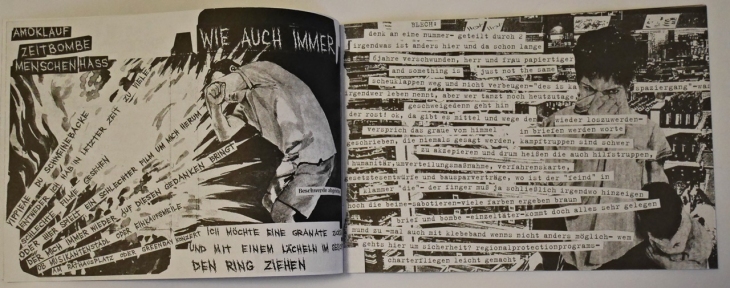 AMOKLAUF
ZEITBOMBE
MENSCHENHASS
WIE AUCH IMMER
YIPPIEAE DU SCHWEINEBACKE
ENTWEDER ICH HAB IN LETZTER ZEIT ZU VIELE
SCHLECHTE FILME GESEHEN
ODER HIER SPIELT EIN SCHLECHTER FILM UM MICH HERUM
DER MICH IMMER WIEDER AUF DIESEN GEDANKEN BRINGT
OB MUSIKANTENSTADL ODER EINKAUFSMEILE
AM RATHAUSPLATZ ODER GREENDAY KONZERT
ICH MÖCHTE EINE GRANATE
UND MIT EINEM LÄCHELN IM
DEN RING ZIEHEN
Beschwerde
BLECH:
denk an eine nummer- geteilt durch 2
irgendwas ist anders hier und da schon lange
6jahre verschwunden, herr und frau papiertiger
and something is just not the same
scheuklappen weg und nicht verbeugen="des is ka spaziergang"-was
irgendwer leben nennt, aber wer tanzt noch heutzutage
geschweigedenn geht hin
der root! ok, da gibt es mittel und wege den wieder loszuwerden-
versprich das graue vom himmel in briefen werden worte
geschrieben, die niemals gesagt werden, kampftruppen sind schwer
zu akzepieren und drum heißen die auch hilfstruppen,
humanitär, unverteilungsmaßnahme, verfahrenskarte,
gesetzesentwürfe und bausparverträge, wo ist der "feind" in
klammer "die"- der finger muß ja schließlich irgendwo hinzeigen
noch die beine-sabotieren-viele farben ergeben braun
brief und bombe -einseltäter-kommt doch alles sehr gelegen
nund zu -mal auch mit klebeband wenns nicht anders möglich- wem
gehts hier um sicherheit? regionalprotectionprogramu-
charterfliegen leicht gemacht